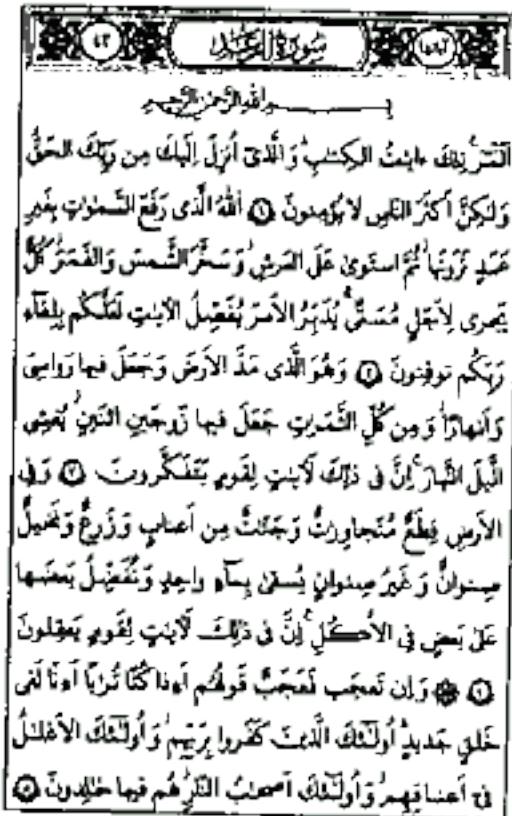 سُورَةُ الرَّعْدِ ٤٣
بِسْمِ اللهِ الرَّحْمَٰنِ الرَّحِيمِ
الٓمٓر ۚ تِلْكَ ءَايَٰتُ الكِتَٰبِ ۗ وَالَّذِىٓ أُنزِلَ إِلَيْكَ مِن رَبِّكَ الحَقُّ
وَلَٰكِنَّ أَكْثَرَ النَّاسِ لَا يُؤْمِنُونَ ١ اللهُ الَّذِى رَفَعَ السَّمَٰوَٰتِ بِغَيرِ
عَمَدٍ تَرَوْنَهَا ۖ ثُمَّ استَوَىٰ عَلَى العَرشِ ۖ وَسَخَّرَ الشَّمسَ وَالقَمَرَ ۖ كُلٌّ
يَجرِى لِأَجَلٍ مُسَمًّى ۚ يُدَبِّرُ الأَمرَ يُفَصِّلُ الآيَٰتِ لَعَلَّكُم بِلِقَآءِ
رَبِّكُم توقِنونَ ٢ وَهُوَ الَّذى مَدَّ الأَرضَ وَجَعَلَ فيها رَوٰسِىَ
وَأَنهٰرًا ۖ وَمِن كُلِّ الثَّمَرٰتِ جَعَلَ فيها زَوجَينِ اثنَينِ ۖ يُغشِى
الَّيلَ النَّهارَ ۚ إِنَّ فى ذٰلِكَ لَآيٰتٍ لِقَومٍ يَتَفَكَّرونَ ٣ وَفِى
الأَرضِ قِطَعٌ مُتَجٰوِرٰتٌ وَجَنّٰتٌ مِن أَعنٰبٍ وَزَرعٌ وَنَخيلٌ
صِنوانٌ وَغَيرُ صِنوانٍ يُسقىٰ بِمآءٍ وٰحِدٍ وَنُفَضِّلُ بَعضَها
عَلىٰ بَعضٍ فِى الأُكُلِ ۚ إِنَّ فى ذٰلِكَ لَآيٰتٍ لِقَومٍ يَعقِلونَ
٤ ۞ وَإِن تَعجَب فَعَجَبٌ قَولُهُم أَءِذا كُنّا تُرٰبًا أَءِنّا لَفى
خَلقٍ جَديدٍ ۗ أُولٰئِكَ الَّذينَ كَفَروا بِرَبِّهِم ۖ وَأُولٰئِكَ الأَغلٰلُ
فى أَعناقِهِم ۖ وَأُولٰئِكَ أَصحٰبُ النّارِ ۖ هُم فيها خٰلِدونَ ٥